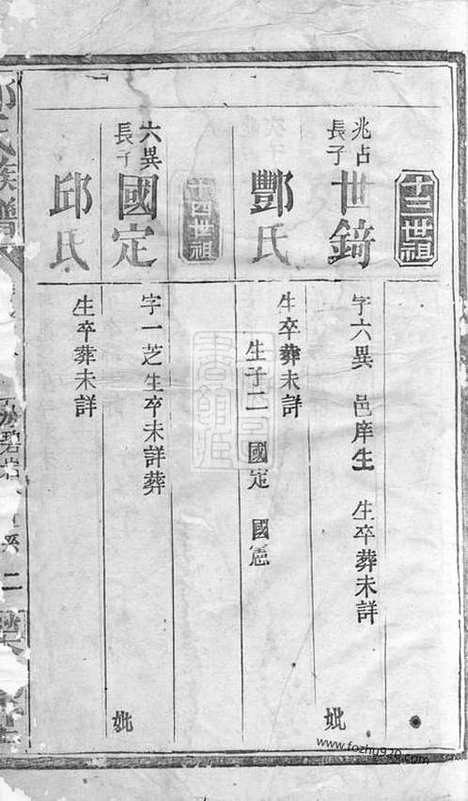 十三世祖
兆占長子 世錡 字六異 邑庠生 生卒葬未詳 妣
酆氏 生卒葬未詳
生子二 國定 國憲
十四世祖
六異長子 國定 字一芝生卒未詳葬 妣
邱氏 生卒葬未詳
氏族譜
二
www.fozhu920.com